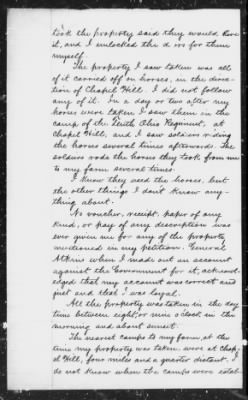 took the property said they would have
it, and I unlocked the doors for them
myself.
The property I saw taken was all
of it carried off on horses, in the direc-
tion of Chapel Hill. I did not follow
any of it. In a day or two after my
horses were taken I saw them in the
camp of the Tenth Ohio Regiment, at
Chapel Hill, and I saw soldiers riding
the horses several times afterwards. The
soldiers rode the horses they took from me
to my farm several times.
I know they used the horses, but
the other things I don't know any-
thing about.
No voucher, receipt, paper of any
kind, or pay of any description was
ever given me for any of the property
mentioned in my petition. General
Atkins when I made out an account
against the Government for it, acknowl-
edged that my account was correct and
just and that I was loyal.
All the property was taken in the day
time between eight or nine o'clock in the
morning and about sunset.
The nearest camps to my farm, at the
time my property was taken were at Chap-
el Hill, four miles and a quarter distant. I
do not know when the camps were estab-